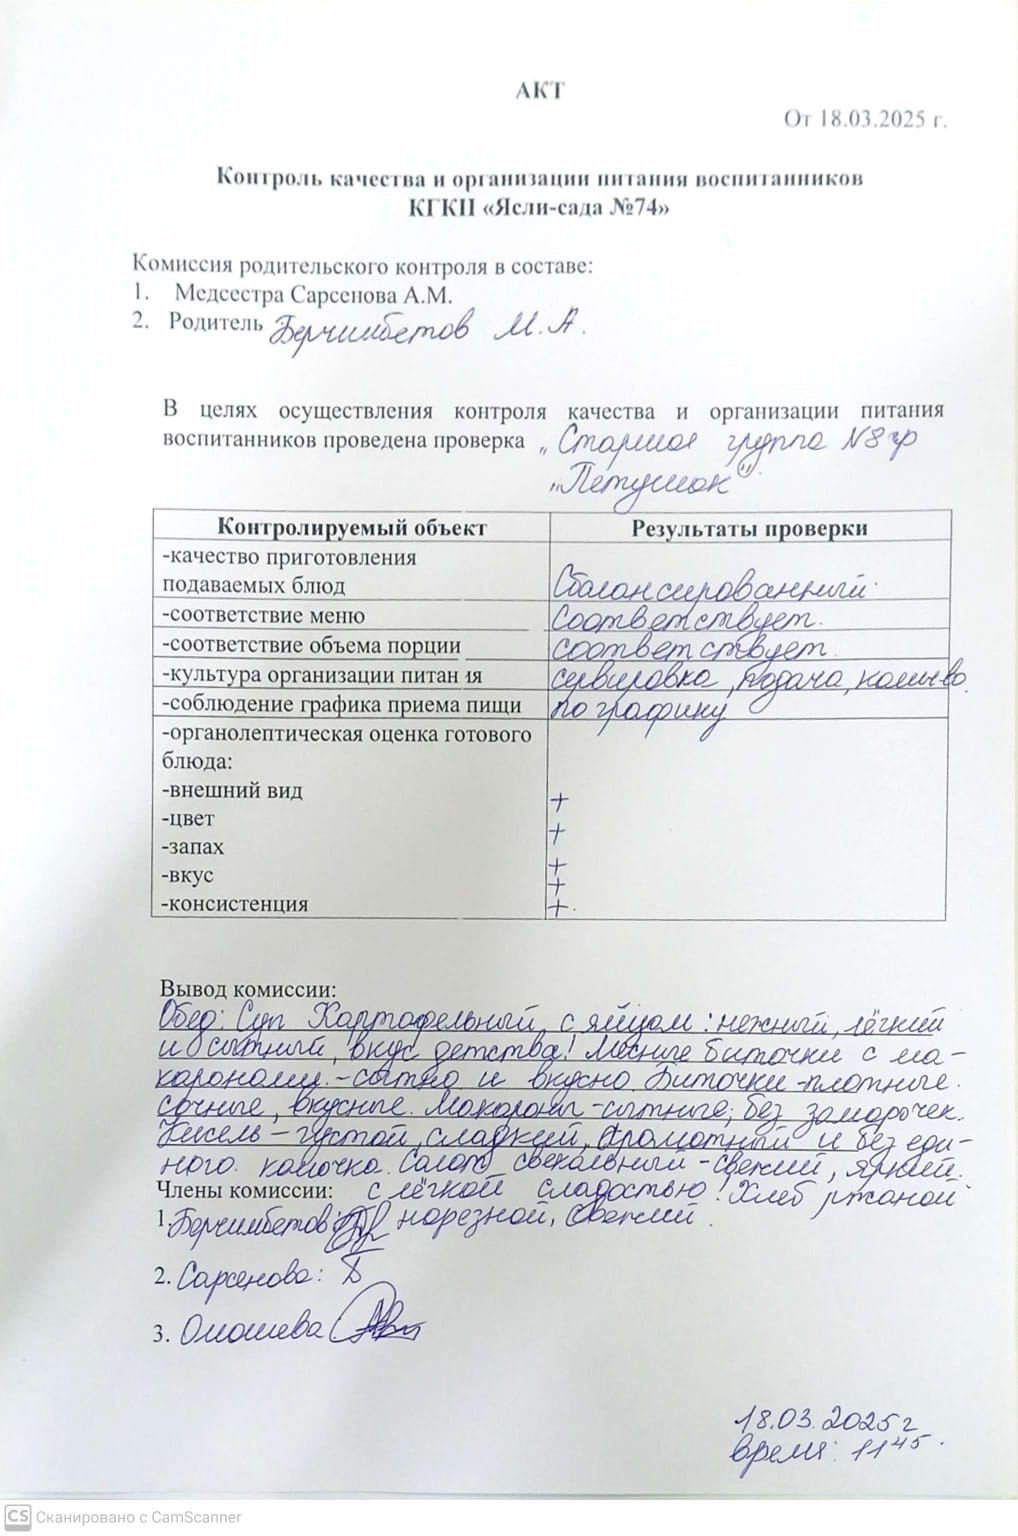 АКТ
От 18.03.2025 г.
Контроль качества и организации питания воспитанников
КГКП «Ясли-сада №74»
Комиссия родительского контроля в составе:
1. Медсестра Сарсенова А.М.
2. Родитель Берчимбетов М.А.
В целях осуществления контроля качества и организации питания
воспитанников проведена проверка „Старшая группа №8 гр
„Петушок"
Контролируемый объект Результаты проверки
-качество приготовления
подаваемых блюд Сбалансированный.
-соответствие меню Соответствует.
-соответствие объема порции соответствует.
-культура организации питания сервировка, подача, кол-во.
-соблюдение графика приема пищи по графику
-органолептическая оценка готового
блюда:
-внешний вид +
-цвет +
-запах +
-вкус +
-консистенция +.
Вывод комиссии:
Обед: Суп Картафельный, с яйцом: нежный, лёгкий
и сытный, вкус детства! Мясные биточки с ма-
каронами.-сытно и вкусно. Биточки-плотные.
сочные, вкусные. Макароны-сытные, без заморочек.
Кисель-густой, сладкий, ароматный и без еди-
ного комочка. Салат свекольный-свежий, яркий.
Члены комиссии: с лёгкой сладостью! Хлеб ржаной
1. Берчимбетов: нарезной, свежий.
2. Сарсенова:
3. Омашева
18.03.2025г
время: 11 45.
CS Сканировано с CamScanner